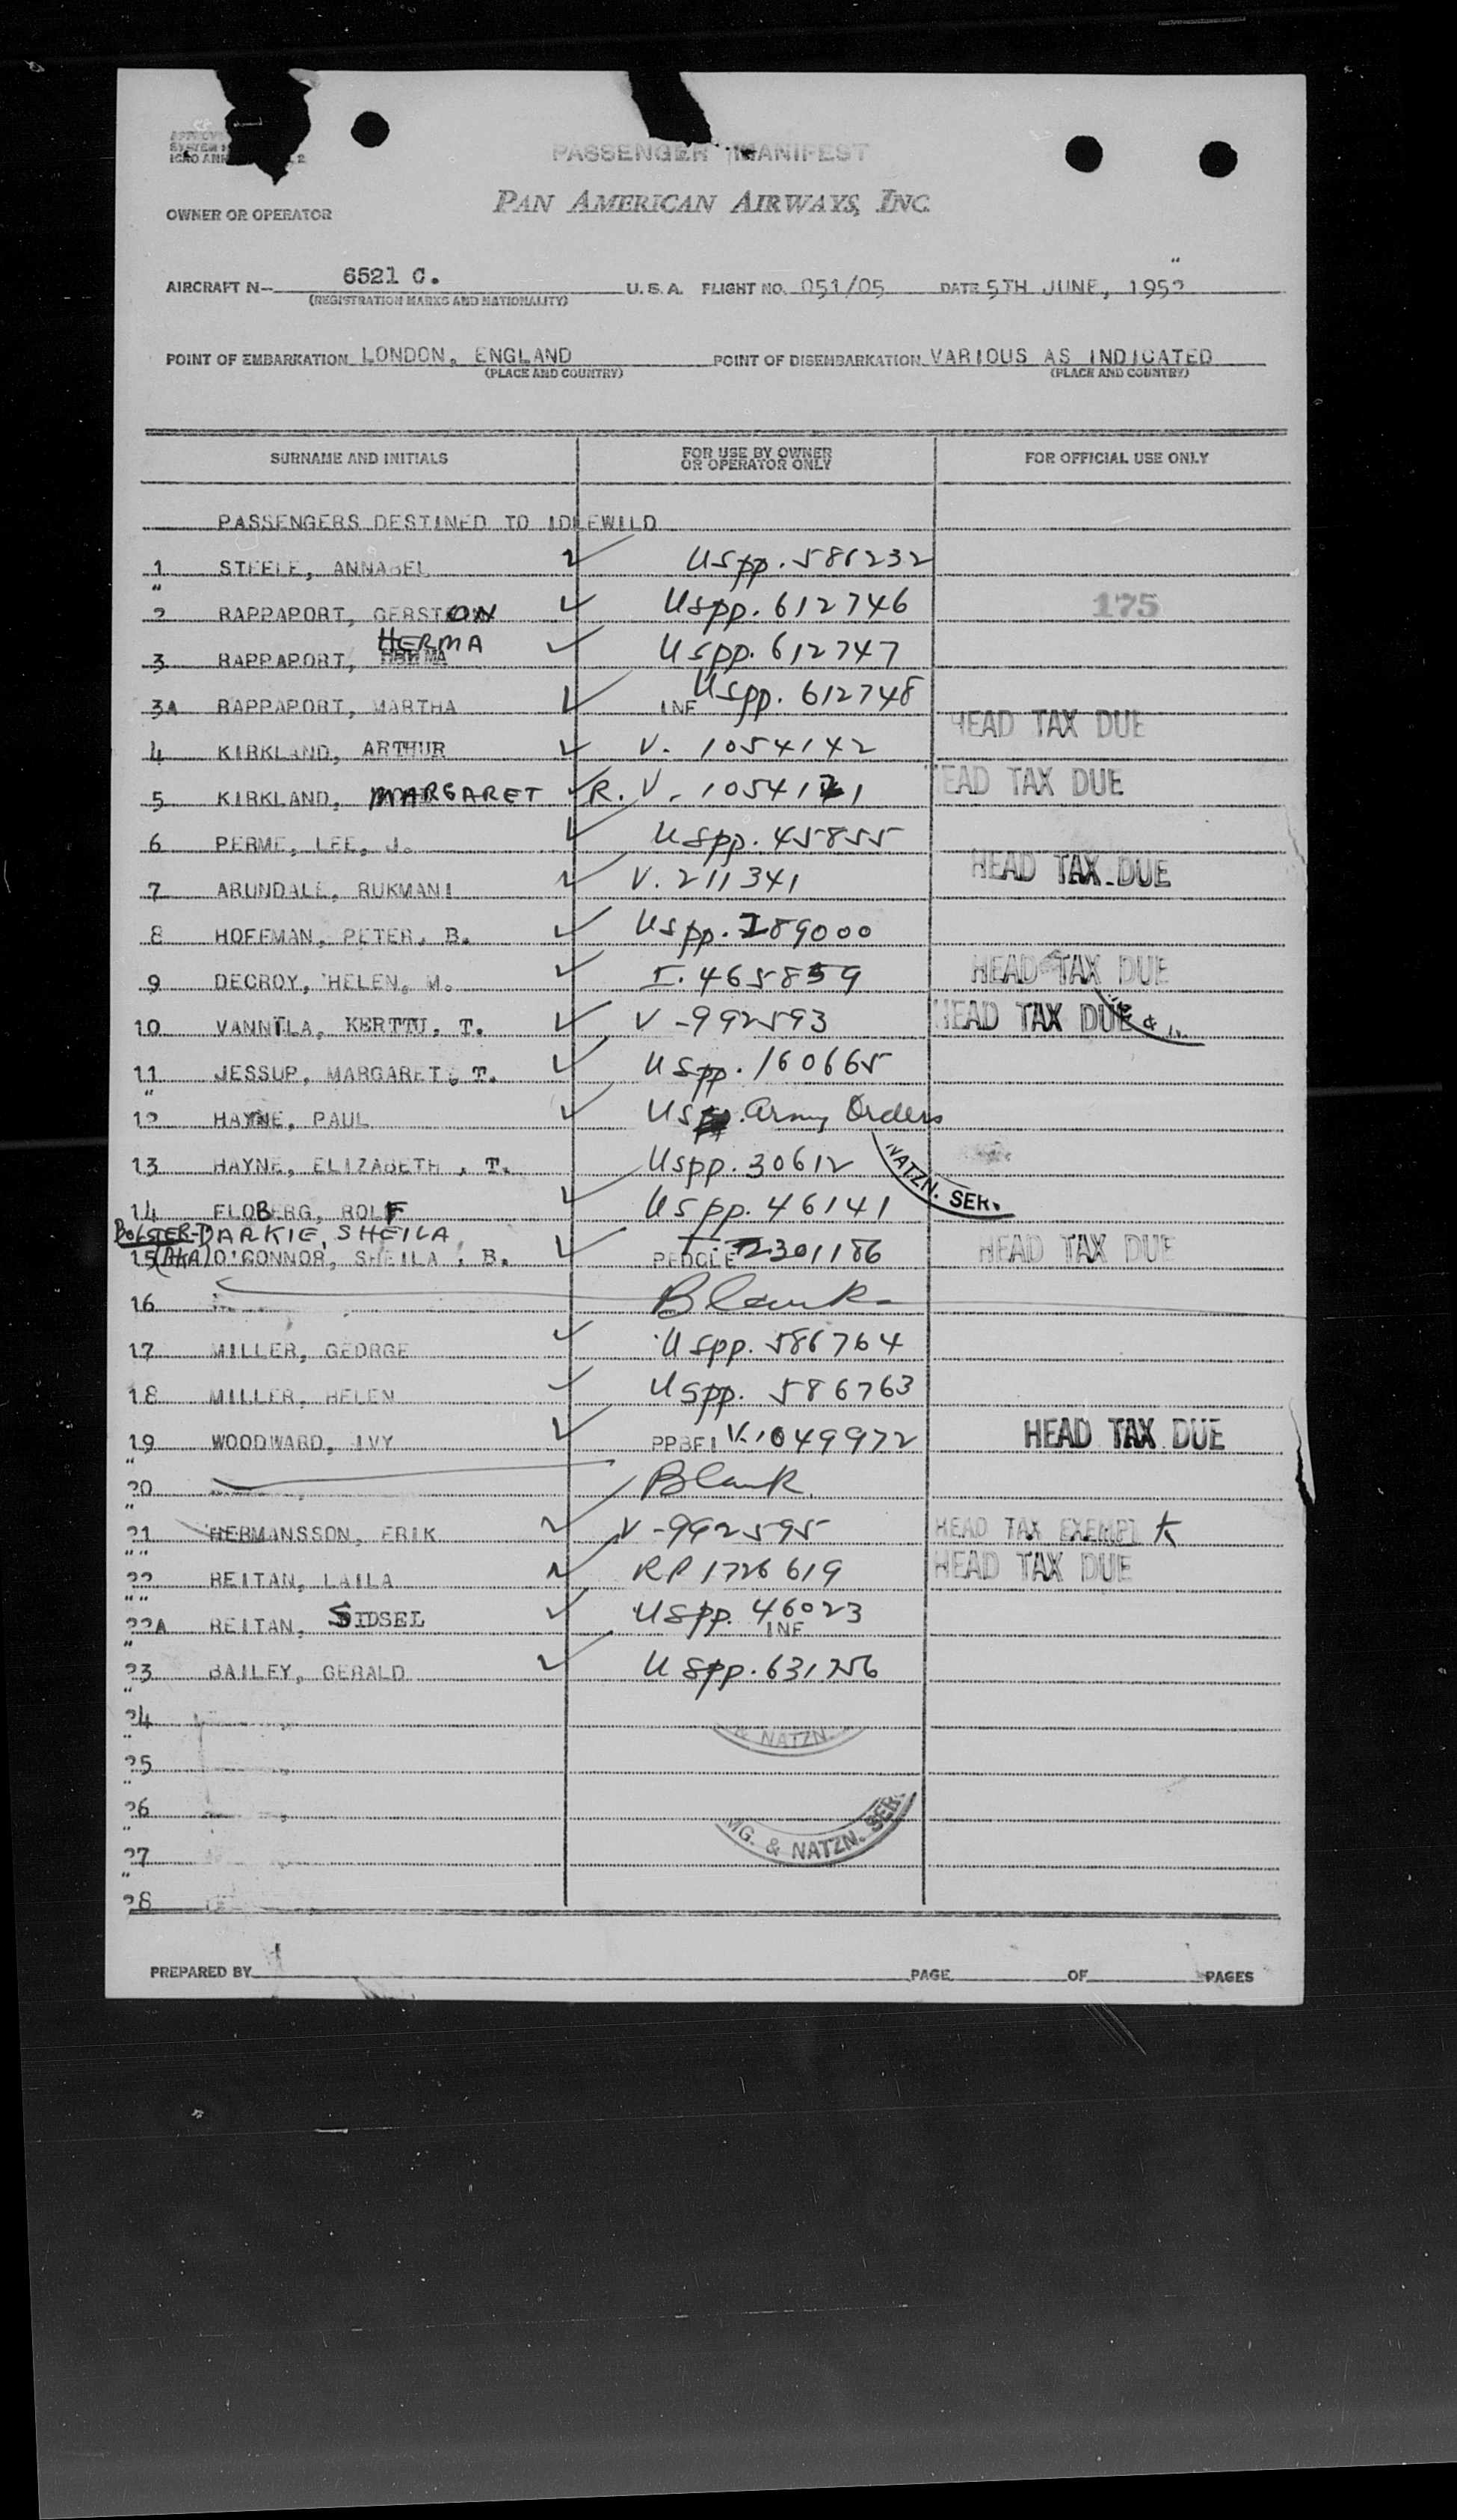 PASSENGER MANIFEST
PAN AMERICAN AIRWAYS, INC
OWNER OR OPERATOR
AIRCRAFT N- 6521 C. U. S. A. FLIGHT NO. 051/05 DATE 5TH JUNE, 1952
(REGISTRATION MARKS AND NATIONALITY)
POINT OF EMBARKATION LONDON, ENGLAND POINT OF DISEMBARKATION VARIOUS AS INDICATED
(PLACE AND COUNTRY) (PLACE AND COUNTRY)
SURNAME AND INITIALS FOR USE BY OWNER OR OPERATOR ONLY FOR OFFICIAL USE ONLY
PASSENGERS DESTINED TO IDLEWILD
1 STEELE, ANNABEL USpp. 586232
2 RAPPAPORT, GERSTON USpp. 612746 175
HERMA
3 RAPPAPORT, HERMA USpp. 612747
3A RAPPAPORT, MARTHA INF USpp. 612748
HEAD TAX DUE
4 KIRKLAND, ARTHUR V. 1054142
EAD TAX DUE
5 KIRKLAND, MARGARET R. V. 1054171
6 PERME, LEE, J. USpp. 45855
7 ARUNDALE, RUKMANI V. 211341 HEAD TAX DUE
8 HOFFMAN, PETER, B. USpp. 289000
9 DECROY, HELEN, M. I. 465859 HEAD TAX DUE
10 VANNTLA, KERTTU, T. V-992593 HEAD TAX DUE
11 JESSUP, MARGARET, T. USpp. 160665
12 HAYNE, PAUL US Army Orders
13 HAYNE, ELIZABETH, T. USpp. 30612
NATZN. SER.
14 FLOBERG, ROLF USpp. 46141
BOLSTER-DARKIE, SHEILA
15 (AKA) O'CONNOR, SHEILA, B. I-2301186 HEAD TAX DUE
16 Blank
17 MILLER, GEORGE USpp. 586764
18 MILLER, HELEN USpp. 586763
19 WOODWARD, IVY V. 1049972 HEAD TAX DUE
20 Blank
21 HERMANSSON, ERIK V-992595 HEAD TAX EXEMPT
22 REITAN, LAILA RP 1726619 HEAD TAX DUE
22A REITAN, SIDSEL USpp. 46023
INF
23 BAILEY, GERALD USpp. 631256
24
& NATZN.
25
26
MG. & NATZN. SER.
27
28
PREPARED BY PAGE OF PAGES